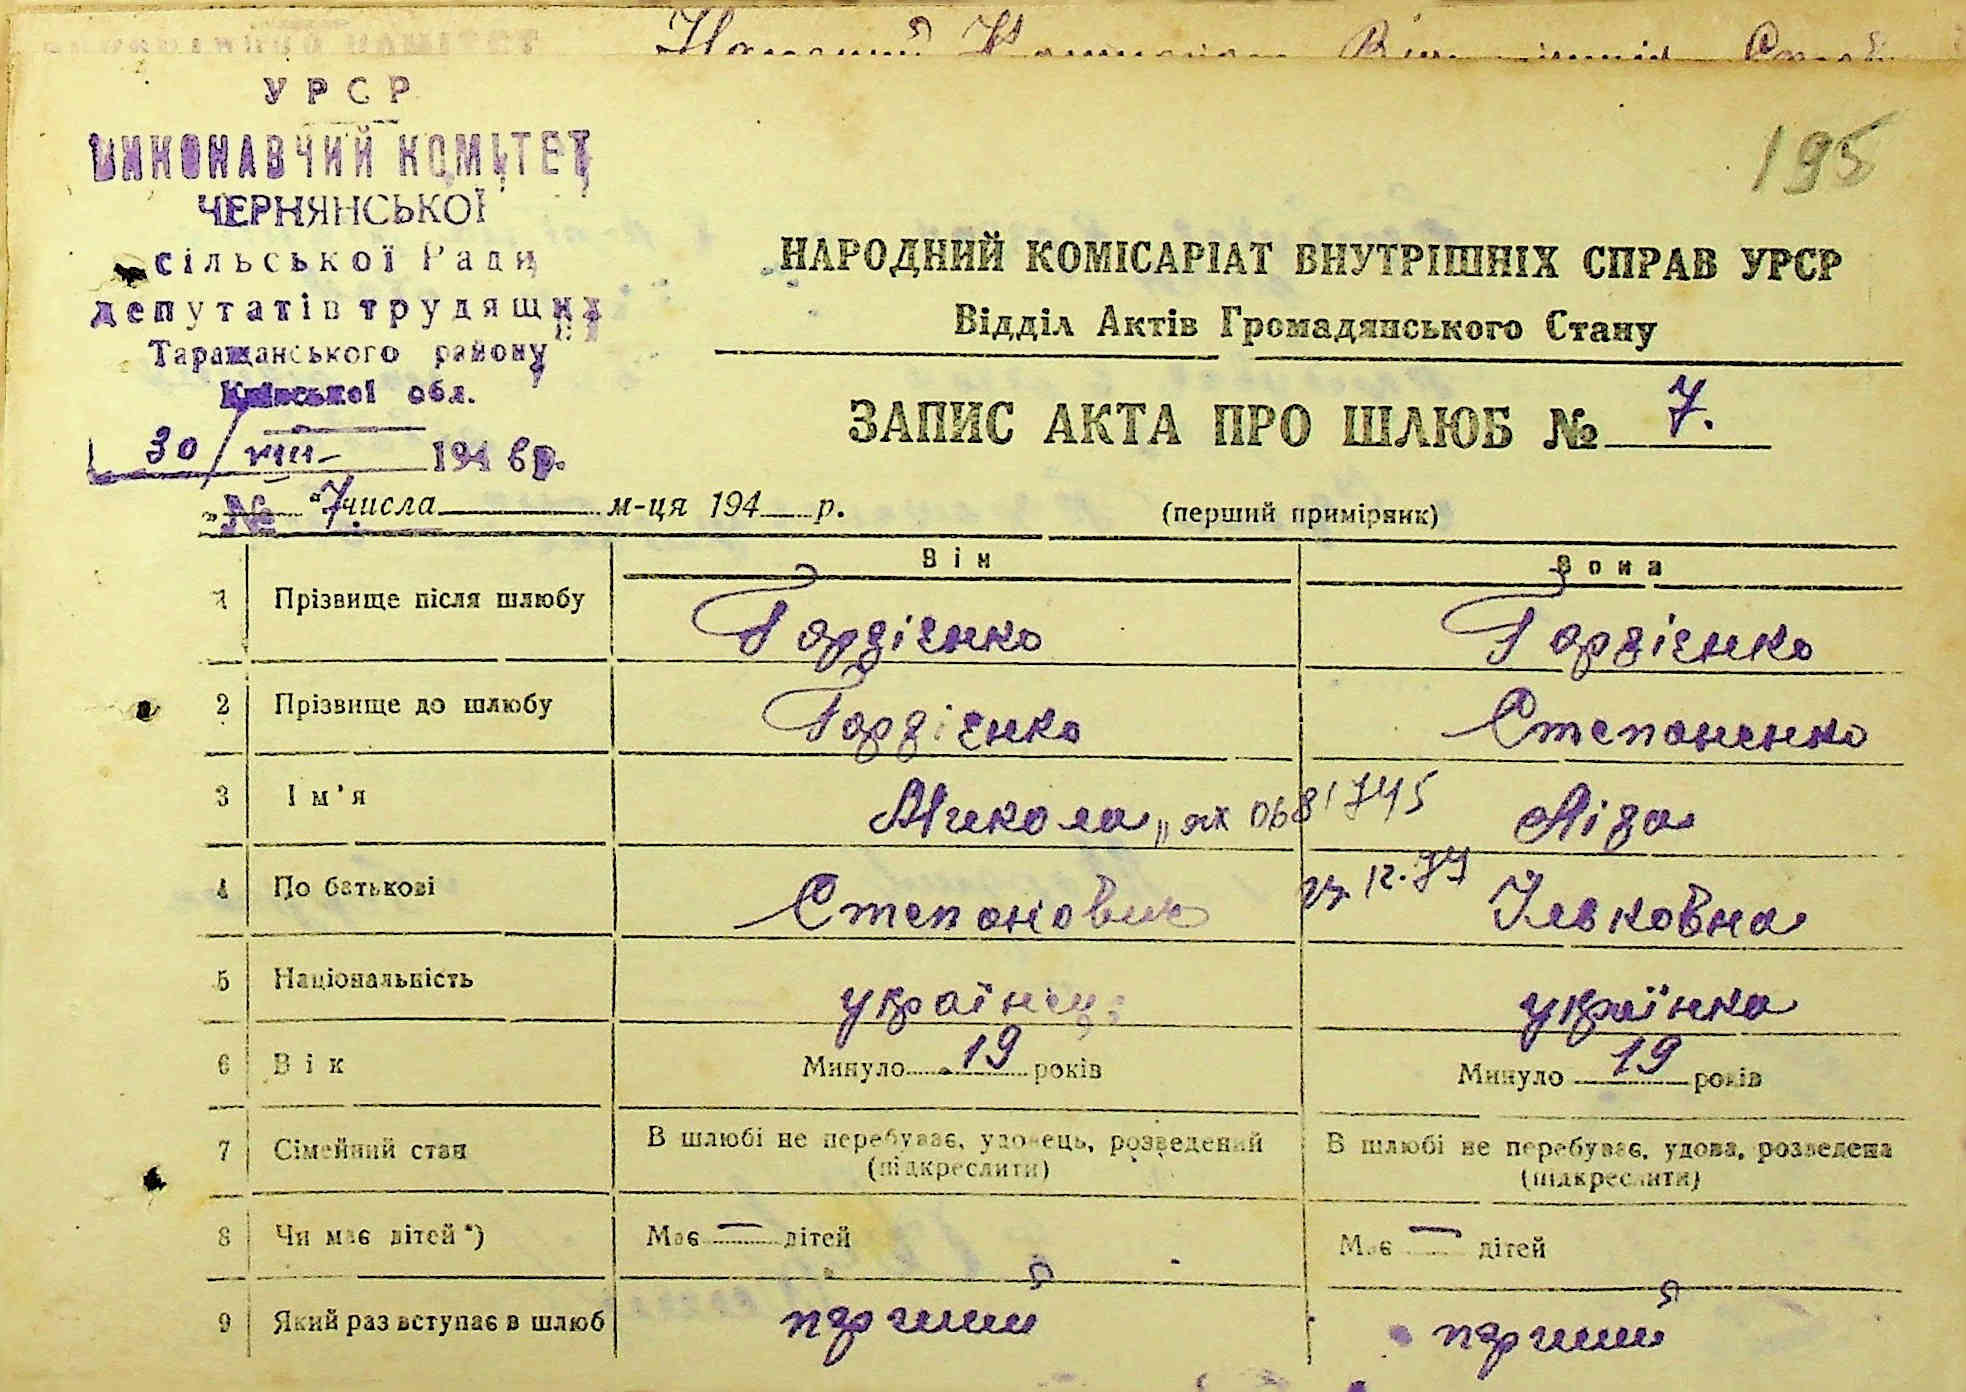 УРСР
ВИКОНАВЧИЙ КОМІТЕТ
ЧЕРНЯНСЬКОЇ
сільської Ради
депутатів трудящих
Таращанського району
Київської обл.
30/VIII- 1946р.
№ 7 числа м-ця 194 р.
195
НАРОДНИЙ КОМІСАРІАТ ВНУТРІШНІХ СПРАВ УРСР
Відділ Актів Громадянського Стану
ЗАПИС АКТА ПРО ШЛЮБ № 7.
(перший примірник)
Він Вона
1 Прізвище після шлюбу Гордієнко Гордієнко
2 Прізвище до шлюбу Гордієнко Степаненко
3 Ім'я Микола 0681745 Ліза
4 По батькові Степанович 12.79 Ільковна
5 Національність українець українка
6 Вік Минуло 19 років Минуло 19 років
7 Сімейний стан В шлюбі не перебуває, удовець, розведений (підкреслити) В шлюбі не перебуває, удова, розведена (підкреслити)
8 Чи має дітей *) Має — дітей Має — дітей
9 Який раз вступає в шлюб перший перший